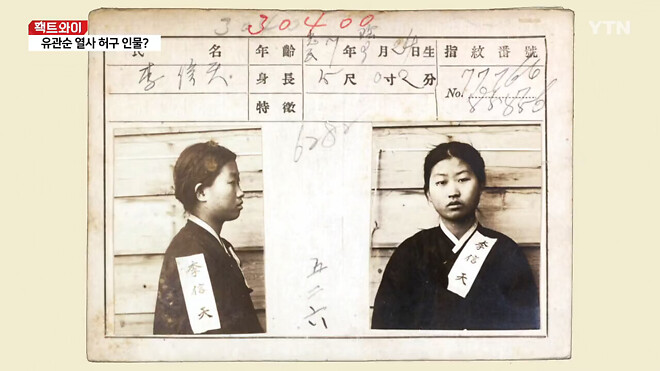 팩트와이
유관순 열사 허구 인물?
YTN
30400
氏名 年齡 年 月 日生 指紋番號
李信天 身長 5尺 0寸 2分 No. 77766
特徵 85856
6282
李信天
李信天
五二六